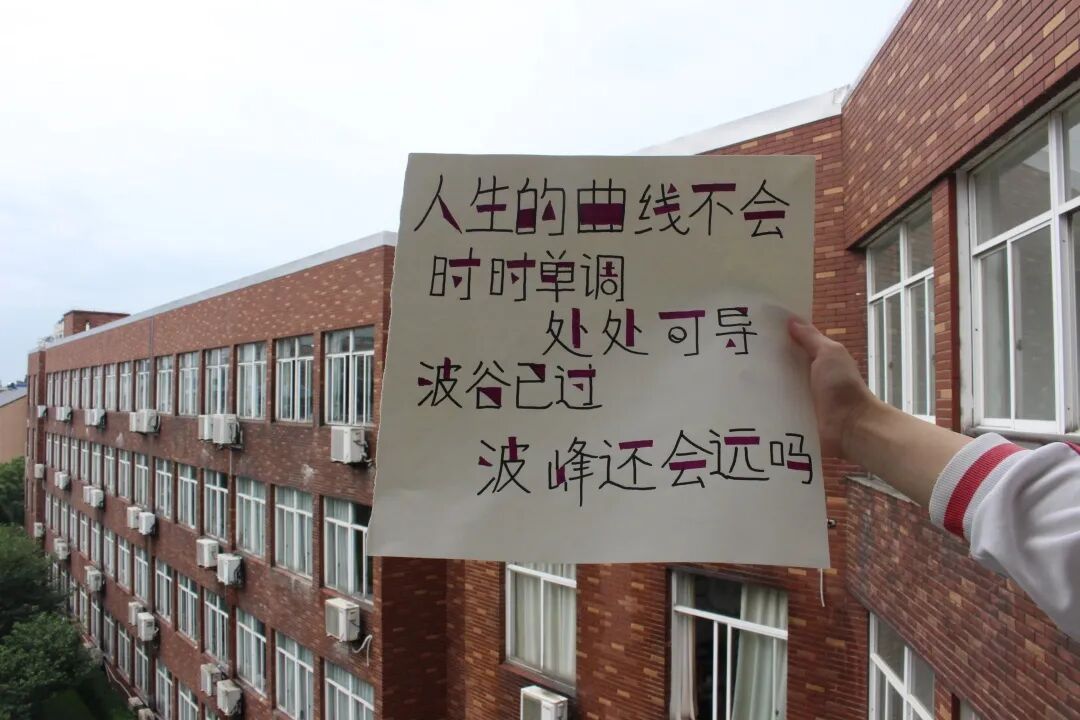 人生的曲线不会
时时单调
处处可导
波谷已过
波峰还会远吗